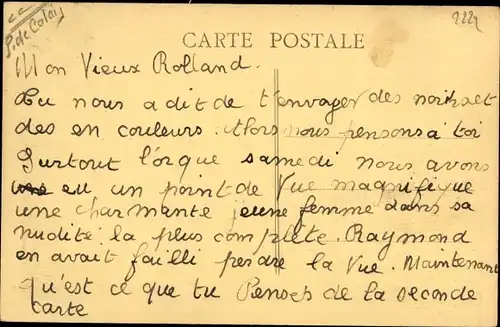 P. de Calais
2221
CARTE POSTALE
Mon Vieux Rolland.
Tu nous a dit de t'envager des noires et
des en couleurs. Alors nous pensons à toi
Surtout l'orque samedi nous avons
eu un point de Vue magnifique
une charmante jeune femme dans sa
nudité la plus complète. Raymond
en avait failli perdre la Vue. Maintenant
Qu'est ce que tu Penses de la seconde
carte